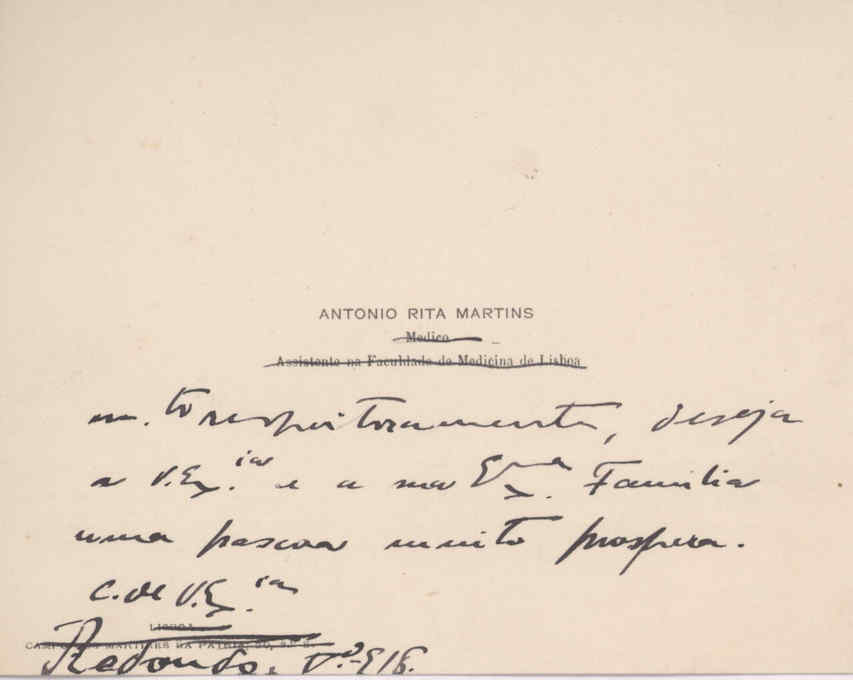 ANTONIO RITA MARTINS
Medico
Assistente na Faculdade de Medicina de Lisboa
m.to respeitosamente, deseja
a V.Ex.ia e a sua Exma. Familia
uma pascoa muito prospera.
C. de V.Ex.ia
LISBOA
CAMPO DOS MARTIRES DA PATRIA,
Redondo,